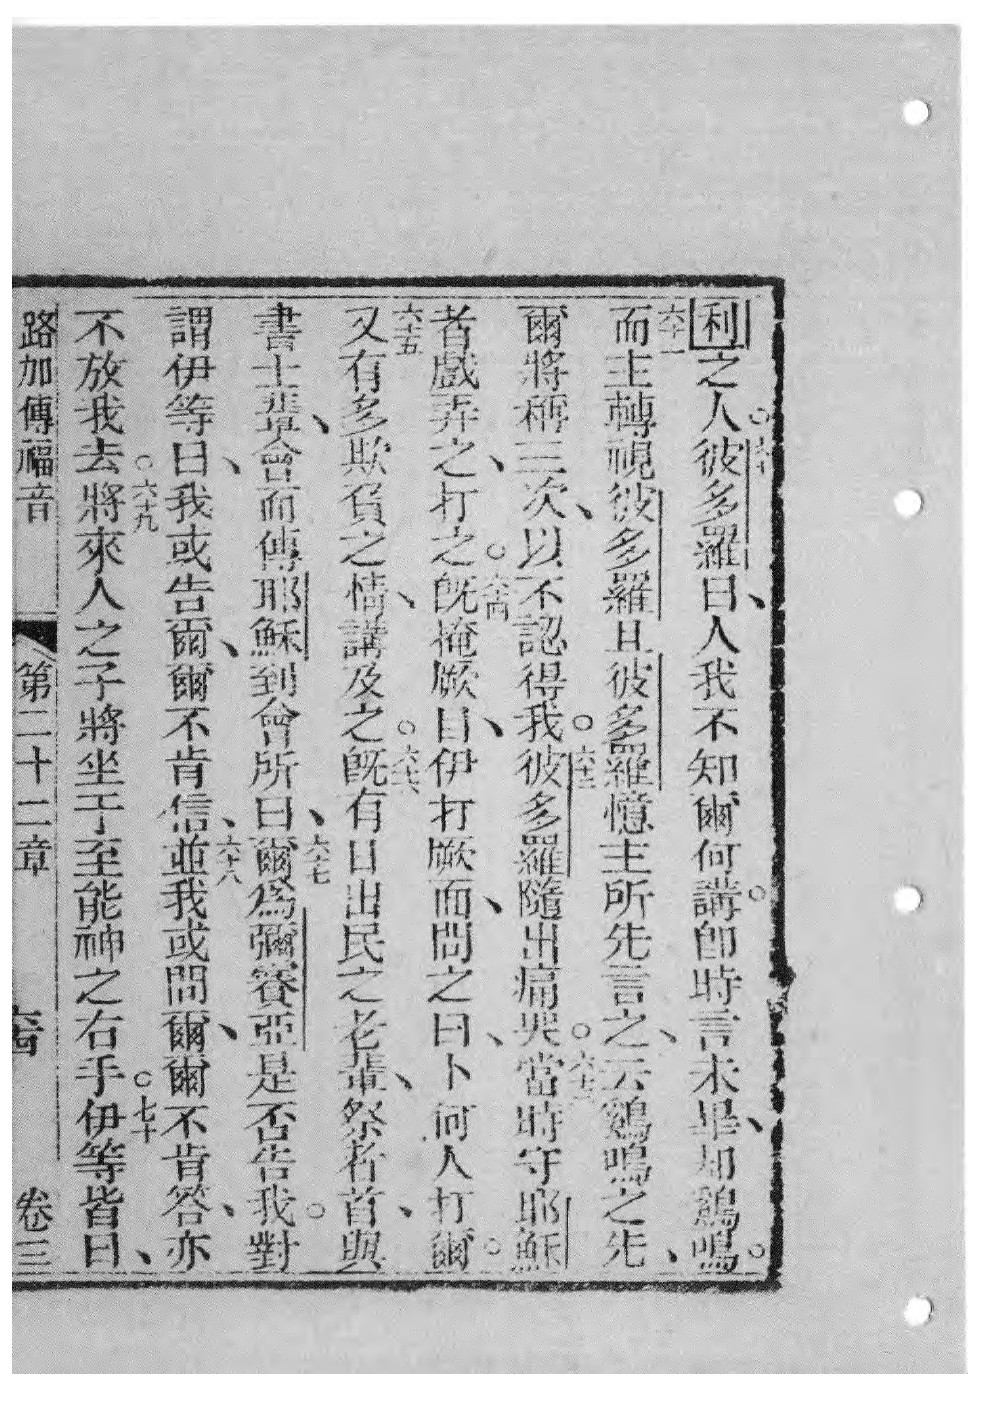 利之人。六十彼多羅曰、人我不知爾何講。卽時言未畢、却鷄鳴。
六十一而主轉視彼多羅且彼多羅憶主所先言之、云鷄鳴之先、
爾將稱三次、以不認得我。六十二彼多羅隨出痛哭。六十三當時守耶穌
者戲弄之、打之。六十四旣掩厥目、伊打厥面、問之曰、卜何人打爾。
六十五又有多欺負之情、講及之。六十六旣有日出民之老輩、祭者首、與
書士輩、會而傳耶穌到會所曰、六十七爾爲彌賽亞是否告我。對
謂伊等曰、我或告爾、爾不肯信、六十八並我或問爾、爾不肯答、亦
不放我去。六十九將來人之子將坐于至能神之右手。七十伊等皆曰、
路加傳福音 第二十二章 卷三